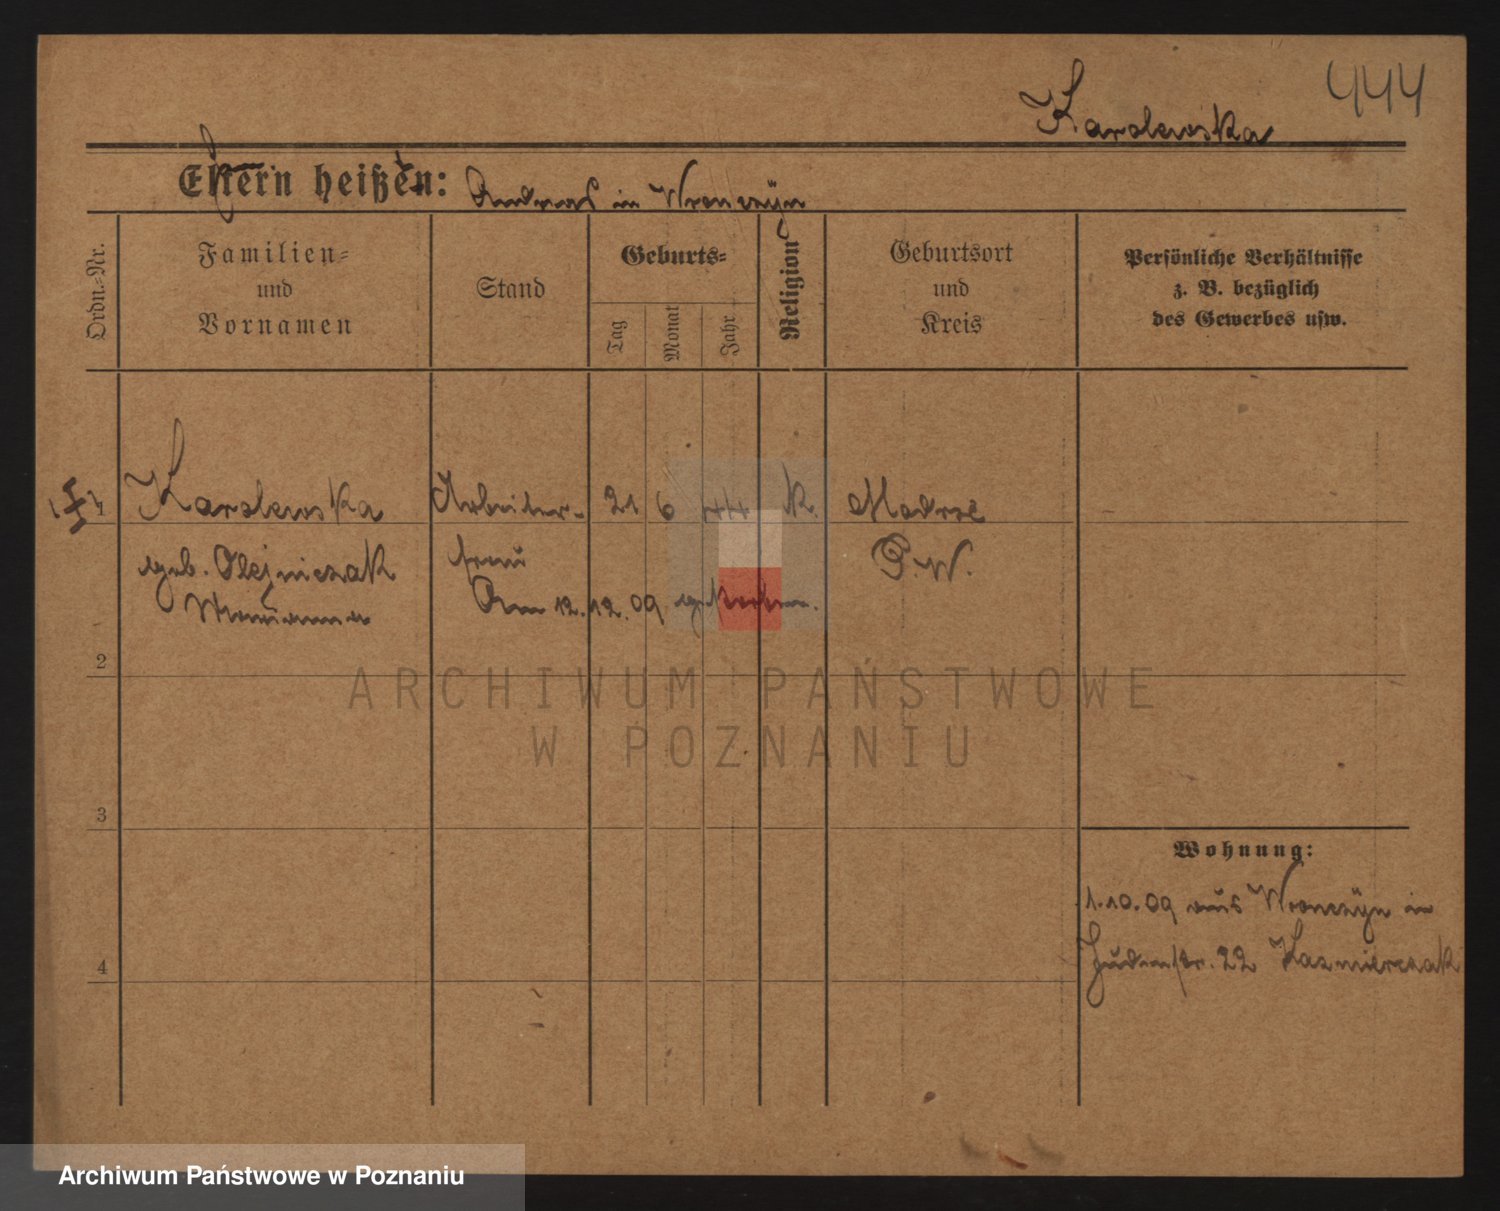 444
Karolewska
Eltern heißen: Andreas in Wronczyn
Ordn.-Nr.
Familien-
und
Vornamen
Stand
Geburts-
Tag
Monat
Jahr
Religion
Geburtsort
und
Kreis
Persönliche Verhältnisse
z. B. bezüglich
des Gewerbes usw.
1 Karolewska Arbeiter- 21 6 44 k. Modrze
geb. Olejniczak frau P. W.
Marianna Am 12.12.09 gestorben.
2
3
4
Wohnung:
1.10.09 aus Wronczyn in
Judenstr. 22 Kazmierczak
ARCHIWUM PAŃSTWOWE
W POZNANIU
Archiwum Państwowe w Poznaniu